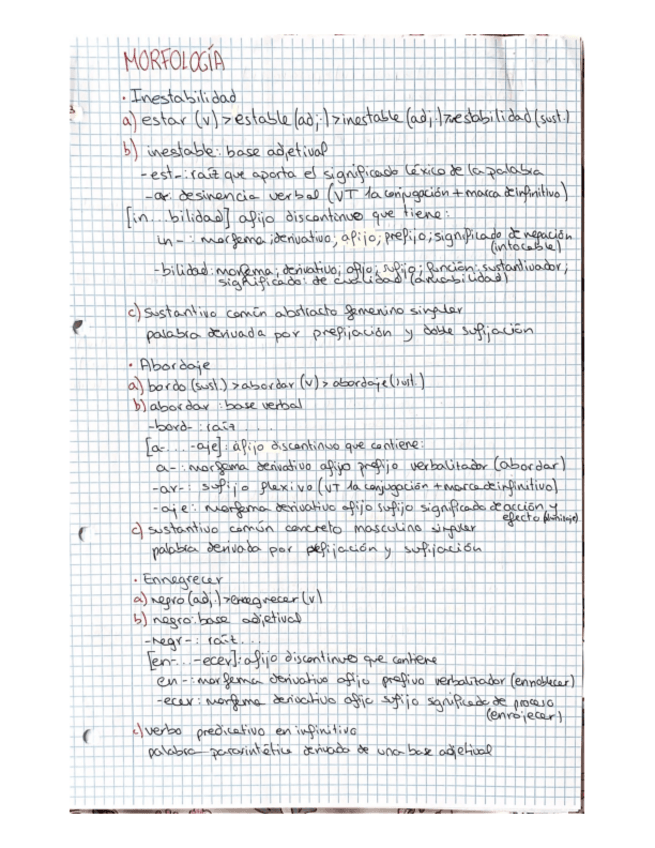 MORFOLOGÍA
· Inestabilidad
a) estar (v) > estable (adj.) > inestable (adj.) > estabilidad (sust.)
b) inestable: base adjetival
-est-: raíz que aporta el significado léxico de la palabra
-ar: desinencia verbal (VT 1a conjugación + marca de infinitivo)
[in...bilidad] afijo discontinuo que tiene:
in-: morfema; derivativo; afijo; prefijo; significado de negación
(intocable)
-bilidad: morfema; derivativo; afijo; sufijo; función: sustantivador;
significado: de cualidad (amabilidad)
c) sustantivo común abstracto femenino singular
palabra derivada por prefijación y doble sufijación
· Abordaje
a) bordo (sust.) > abordar (v) > abordaje (sust.)
b) abordar: base verbal
-bord-: raíz ....
[a-... -aje]: afijo discontinuo que contiene:
a-: morfema derivativo afijo prefijo verbalitador (abordar)
-ar-: sufijo flexivo (VT 1a conjugación + marca de infinitivo)
-aje: morfema derivativo afijo sufijo significado de acción y
efecto
c) sustantivo común concreto masculino singular
palabra derivada por prefijación y sufijación
· Ennegrecer
a) negro (adj.) > ennegrecer (v)
b) negro: base adjetival
-negr-: raíz ...
[en-... -ecer]: afijo discontinuo que contiene
en-: morfema derivativo afijo prefivo verbalitador (ennoblecer)
-ecer: morfema derivativo afijo sufijo significado de proceso
(enrojecer)
c) verbo predicativo en infinitivo
palabra parasintética derivada de una base adjetival